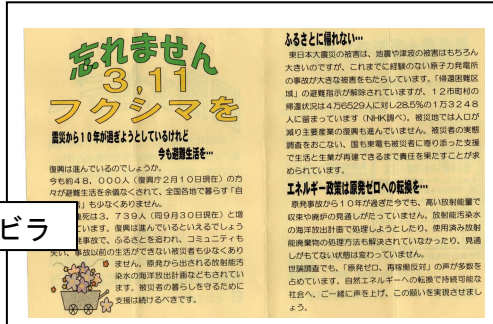 忘れません
3,11
フクシマを
震災から10年が過ぎようとしているけれど
今も避難生活を…
復興は進んでいるのでしょうか。
今も約48,000人(復興庁2月10日現在)の方
々が避難生活を余儀なくされて、全国各地で暮らす「自
も少なくありません。
死は3,739人(同9月30日現在)と増
ています。復興は進んでいるといえるでしょう
発事故で、ふるさとを追われ、コミュニティも
失い、事故以前の生活ができない被災者も少なくあり
ません。原発から出される放射能汚
染水の海洋放出計画などもされてい
ます。被災者の暮らしを守るために
支援は続けるべきです。
ビラ
ふるさとに帰れない…
東日本大震災の被害は、地震や津波の被害はもちろん
大きいのですが、これまでに経験のない原子力発電所
の事故が大きな被害をもたらしています。「帰還困難区
域」の避難指示が解除されていますが、12市町村の
帰還状況は4万6529人に対し28.5%の1万3248
人に留まっています(NHK調べ)。被災地では人口が
減り主要産業の復興も進んでいません。被災者の実態
調査をおこない、国も東電も被災者に寄り添った支援
で生活と生業が再建できるまで責任を果たすことが求
められています。
エネルギー政策は原発ゼロへの転換を…
原発事故から10年が過ぎた今でも、高い放射能量で
収束や廃炉の見通しがたっていません。放射能汚染水
の海洋放出計画で処理しようとしたり、使用済み放射
能廃棄物の処理方法も解決されていなかったり、見通
しがもてない状態は変わっていません。
世論調査でも、「原発ゼロ、再稼働反対」の声が多数を
占めています。自然エネルギーへの転換で持続可能な
社会へ、ご一緒に声を上げ、この願いを実現させまし
ょう。